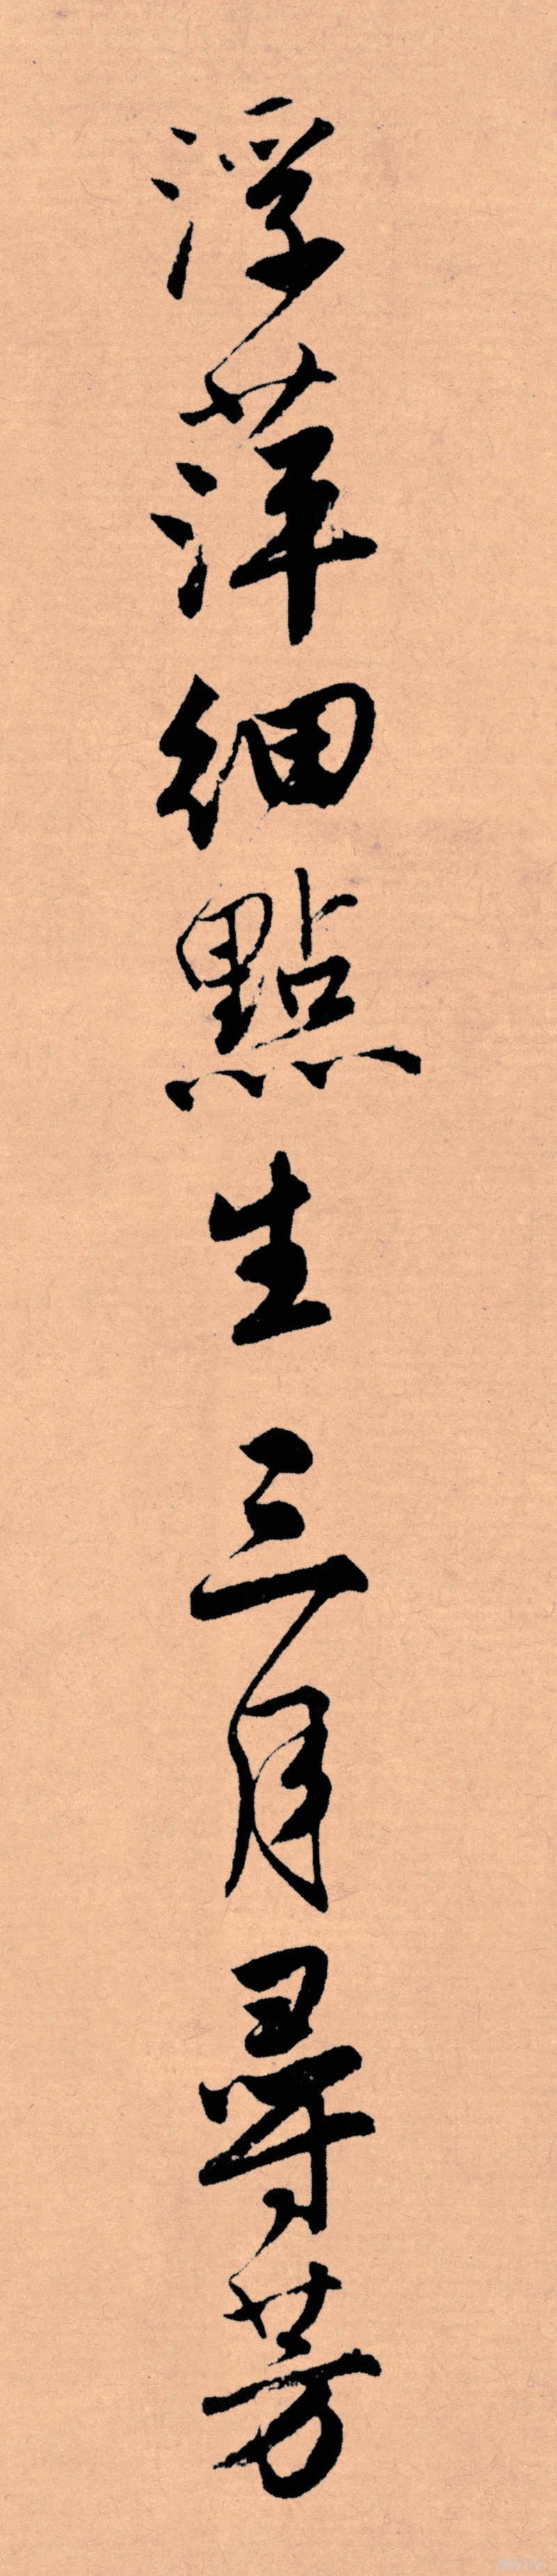 浮萍細點生三月尋芳